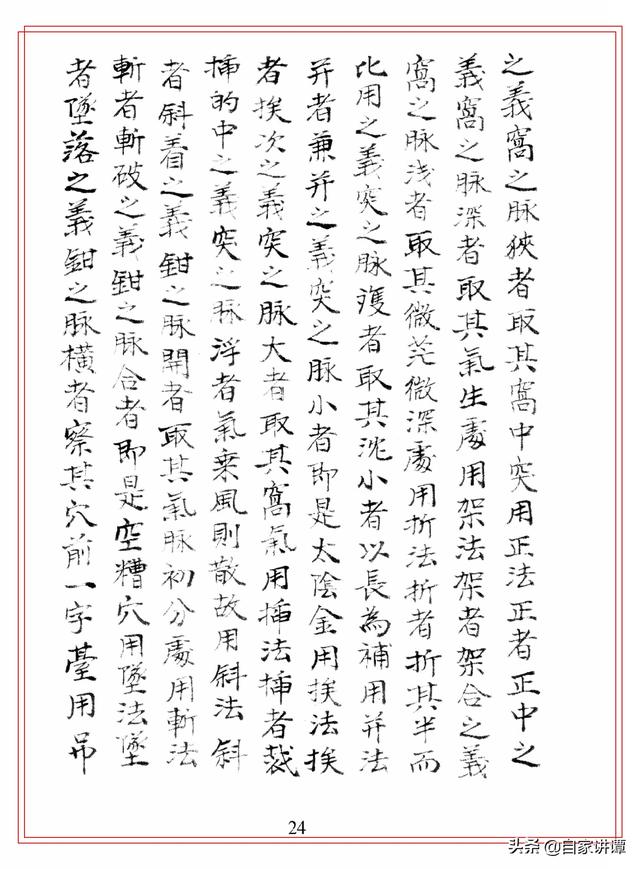 之義窩之脉狹者取其窩中突用正法正者正中之
義窩之脉深者取其氣生處用架法架者架合之義
窩之脉浅者取其微茫微深處用折法折者折其半而
比用之義突之脉雙者取其沈小者以長為補用并法
并者兼并之義突之脉小者即是太陰金用挨法挨
者挨次之義突之脉大者取其窩氣用挿法挿者裁
挿的中之義突之脉浮者氣乗風則散故用斜法斜
者斜着之義鉗之脉開者取其氣脉初分處用斬法
斬者斬破之義鉗之脉合者即是空糟穴用墜法墜
者墜落之義鉗之脉橫者察其穴前一字臺用吊
24
头条 @自家讲谭